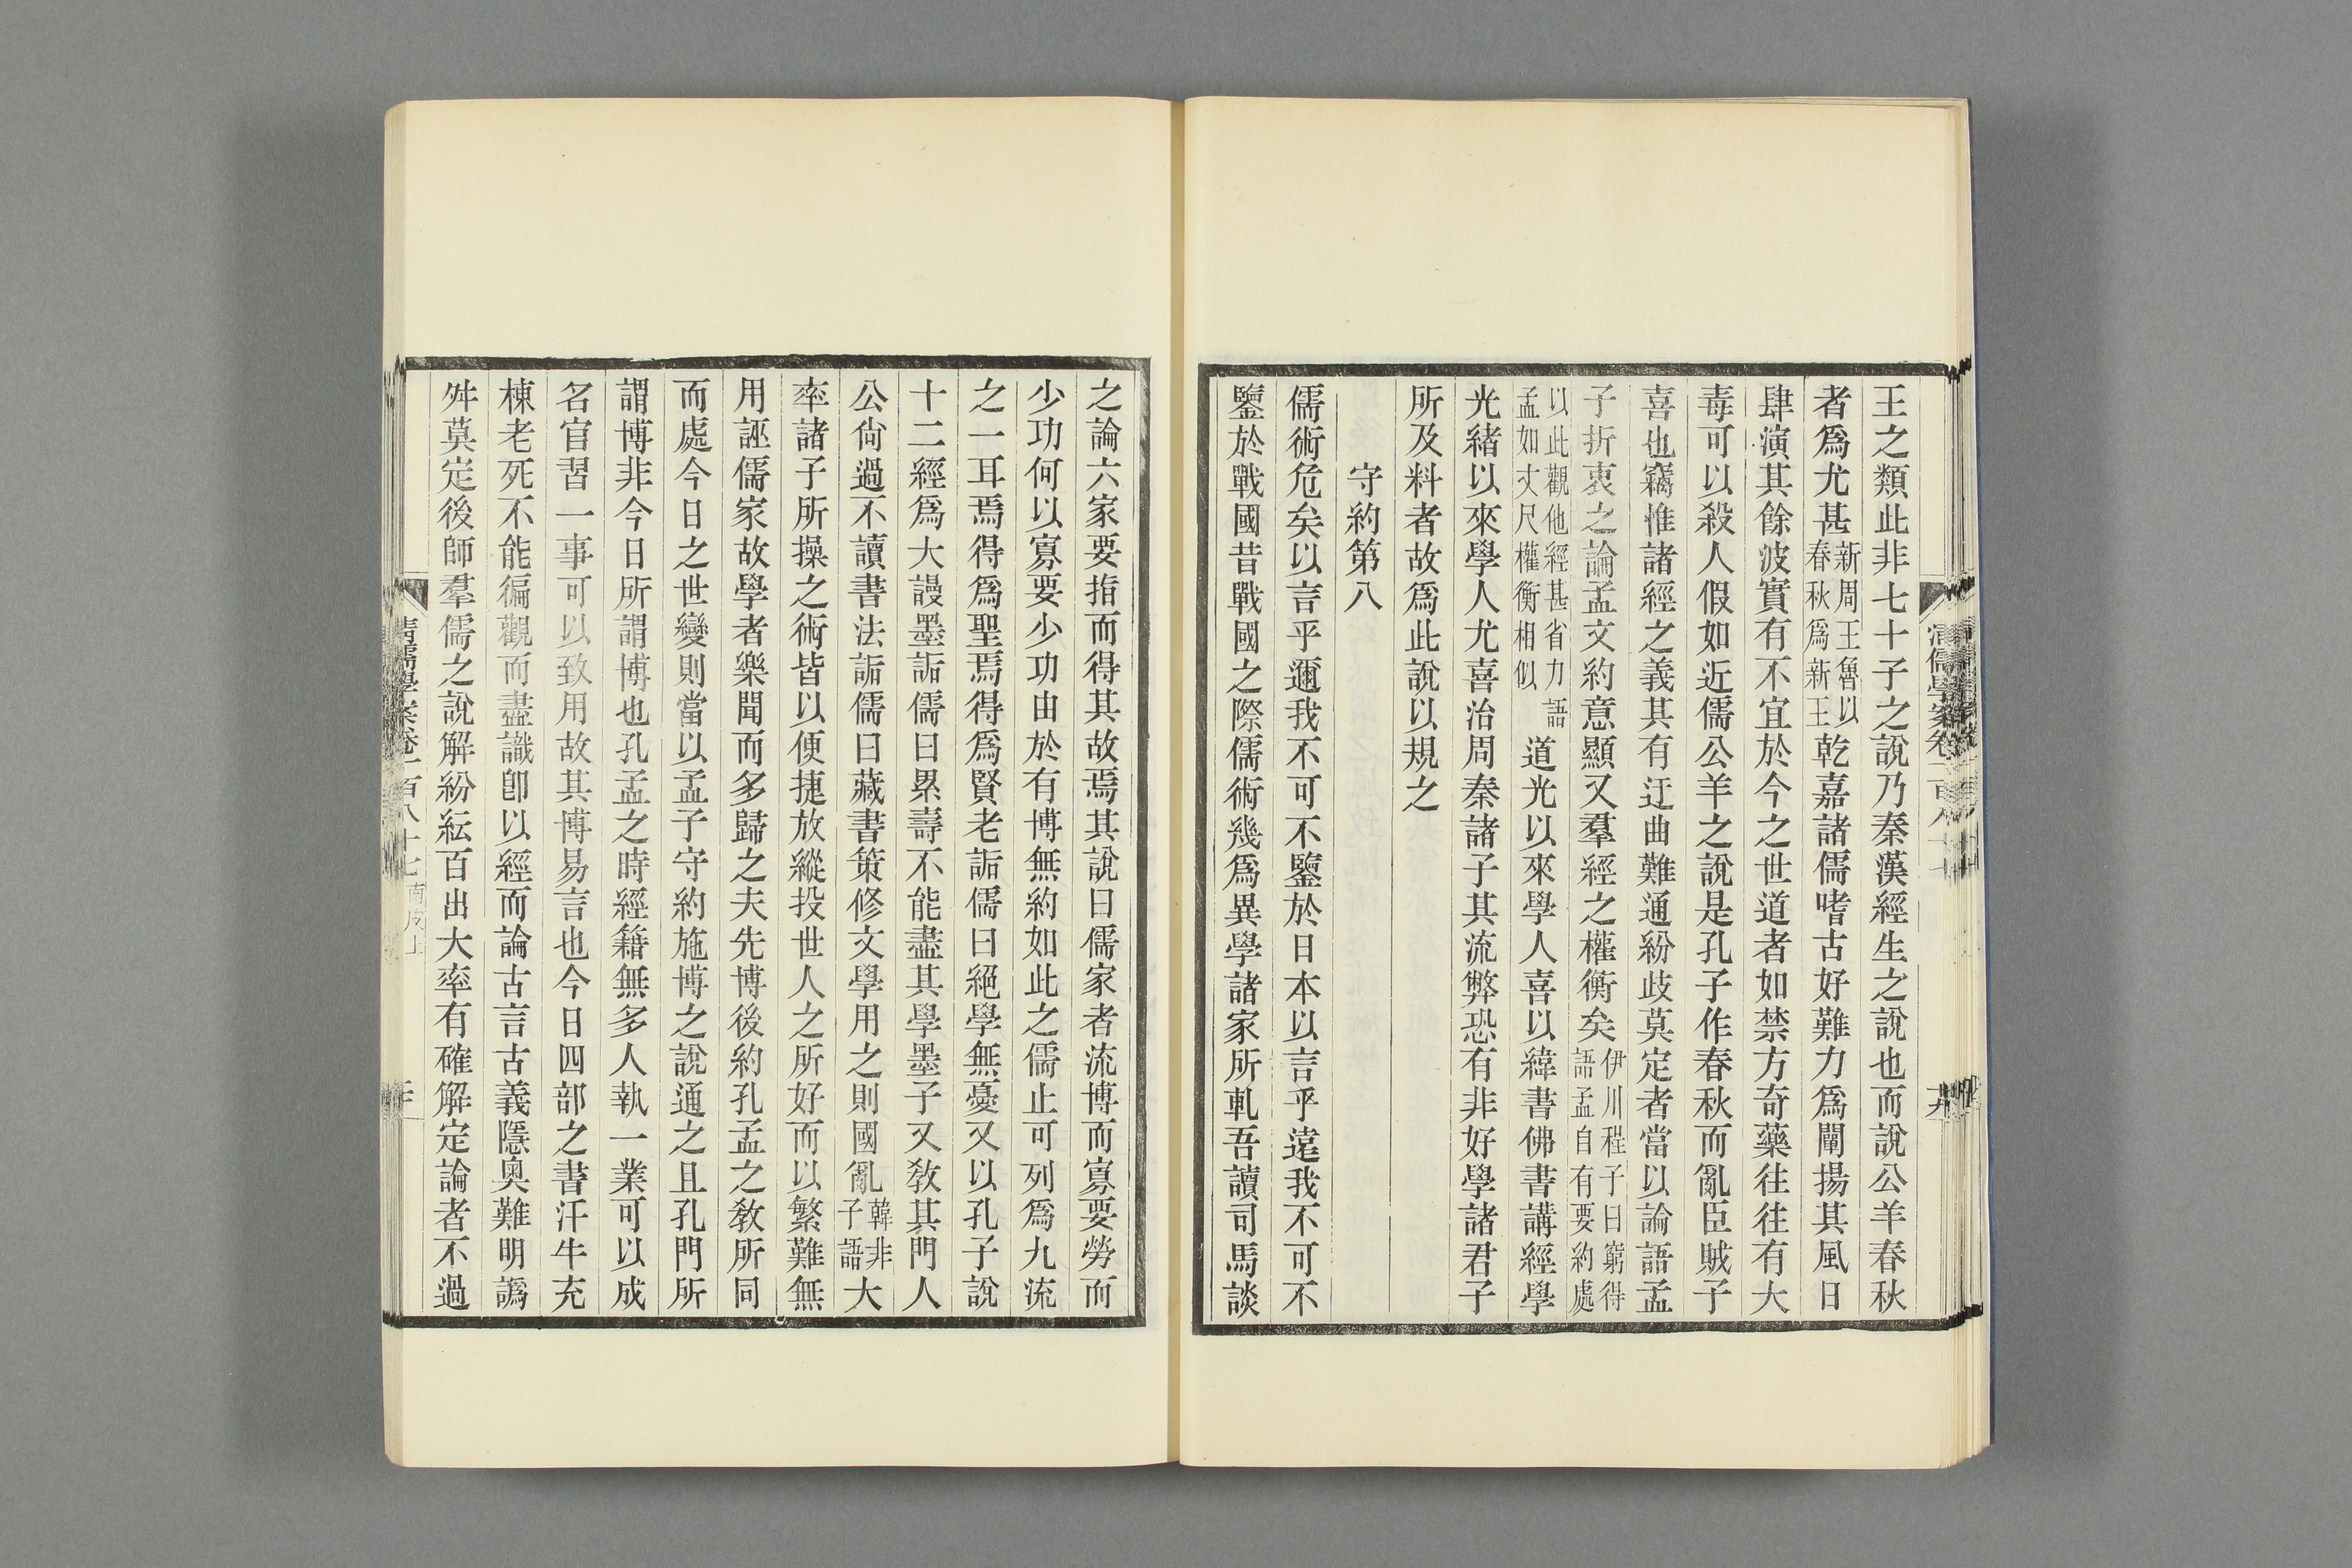 王之類此非七十子之說乃秦漢經生之說也而說公羊春秋
者爲尤甚新周王魯以春秋爲新王乾嘉諸儒嗜古好難力爲闡揚其風日
肆演其餘波實有不宜於今之世道者如禁方奇藥往往有大
毒可以殺人假如近儒公羊之說是孔子作春秋而亂臣賊子
喜也竊惟諸經之義其有迂曲難通紛歧莫定者當以論語孟
子折衷之論孟文約意顯又羣經之權衡矣伊川程子曰窮得語孟自有要約處
以此觀他經甚省力語孟如丈尺權衡相似道光以來學人喜以緯書佛書講經學
光緒以來學人尤喜治周秦諸子其流弊恐有非好學諸君子
所及料者故爲此說以規之
守約第八
儒術危矣以言乎邇我不可不鑒於日本以言乎遠我不可不
鑒於戰國昔戰國之際儒術幾爲異學諸家所軋吾讀司馬談
之論六家要指而得其故焉其說曰儒家者流博而寡要勞而
少功何以寡要少功由於有博無約如此之儒止可列爲九流
之一耳焉得爲聖焉得爲賢老詬儒曰絕學無憂又以孔子說
十二經爲大謾墨詬儒曰累壽不能盡其學墨子又教其門人
公尙過不讀書法詬儒曰藏書策修文學用之則國亂韓非子語大
率諸子所操之術皆以便捷放縱投世人之所好而以繁難無
用誣儒家故學者樂聞而多歸之夫先博後約孔孟之敎所同
而處今日之世變則當以孟子守約施博之說通之且孔門所
謂博非今日所謂博也孔孟之時經籍無多人執一業可以成
名官習一事可以致用故其博易言也今日四部之書汗牛充
棟老死不能徧觀而盡識卽以經而論古言古義隱奧難明譌
舛莫定後師羣儒之說解紛紜百出大率有確解定論者不過
清儒學案卷一百八十七南皮上